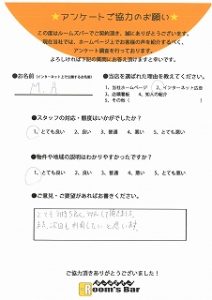 ★アンケートご協力のお願い★
この度はルームズバーでご契約頂き、誠にありがとうございます。
現在当社では、ホームページ上でお客様の声を紹介するべく、
アンケート調査を行っております。
よろしければ下記の質問にお答え頂けますと幸いです。
●お名前(インターネット上で公開するお名前)
M.A
●当店を選ばれた理由を教えてください。
1、当社ホームページ 2、インターネット広告
3、店頭看板 4、知人の紹介
5、その他(
●スタッフの対応・態度はいかがでしたか?
1、とても良い 2、良い 3、普通 4、悪い 5、とても悪い
●物件や地域の説明はわかりやすかったですか?
1、とても良い 2、良い 3、普通 4、悪い 5、とても悪い
●ご意見・ご要望があればお書きください。
また、次回も利用したいと思います
ご協力頂きありがとうございました!
Room's Bar